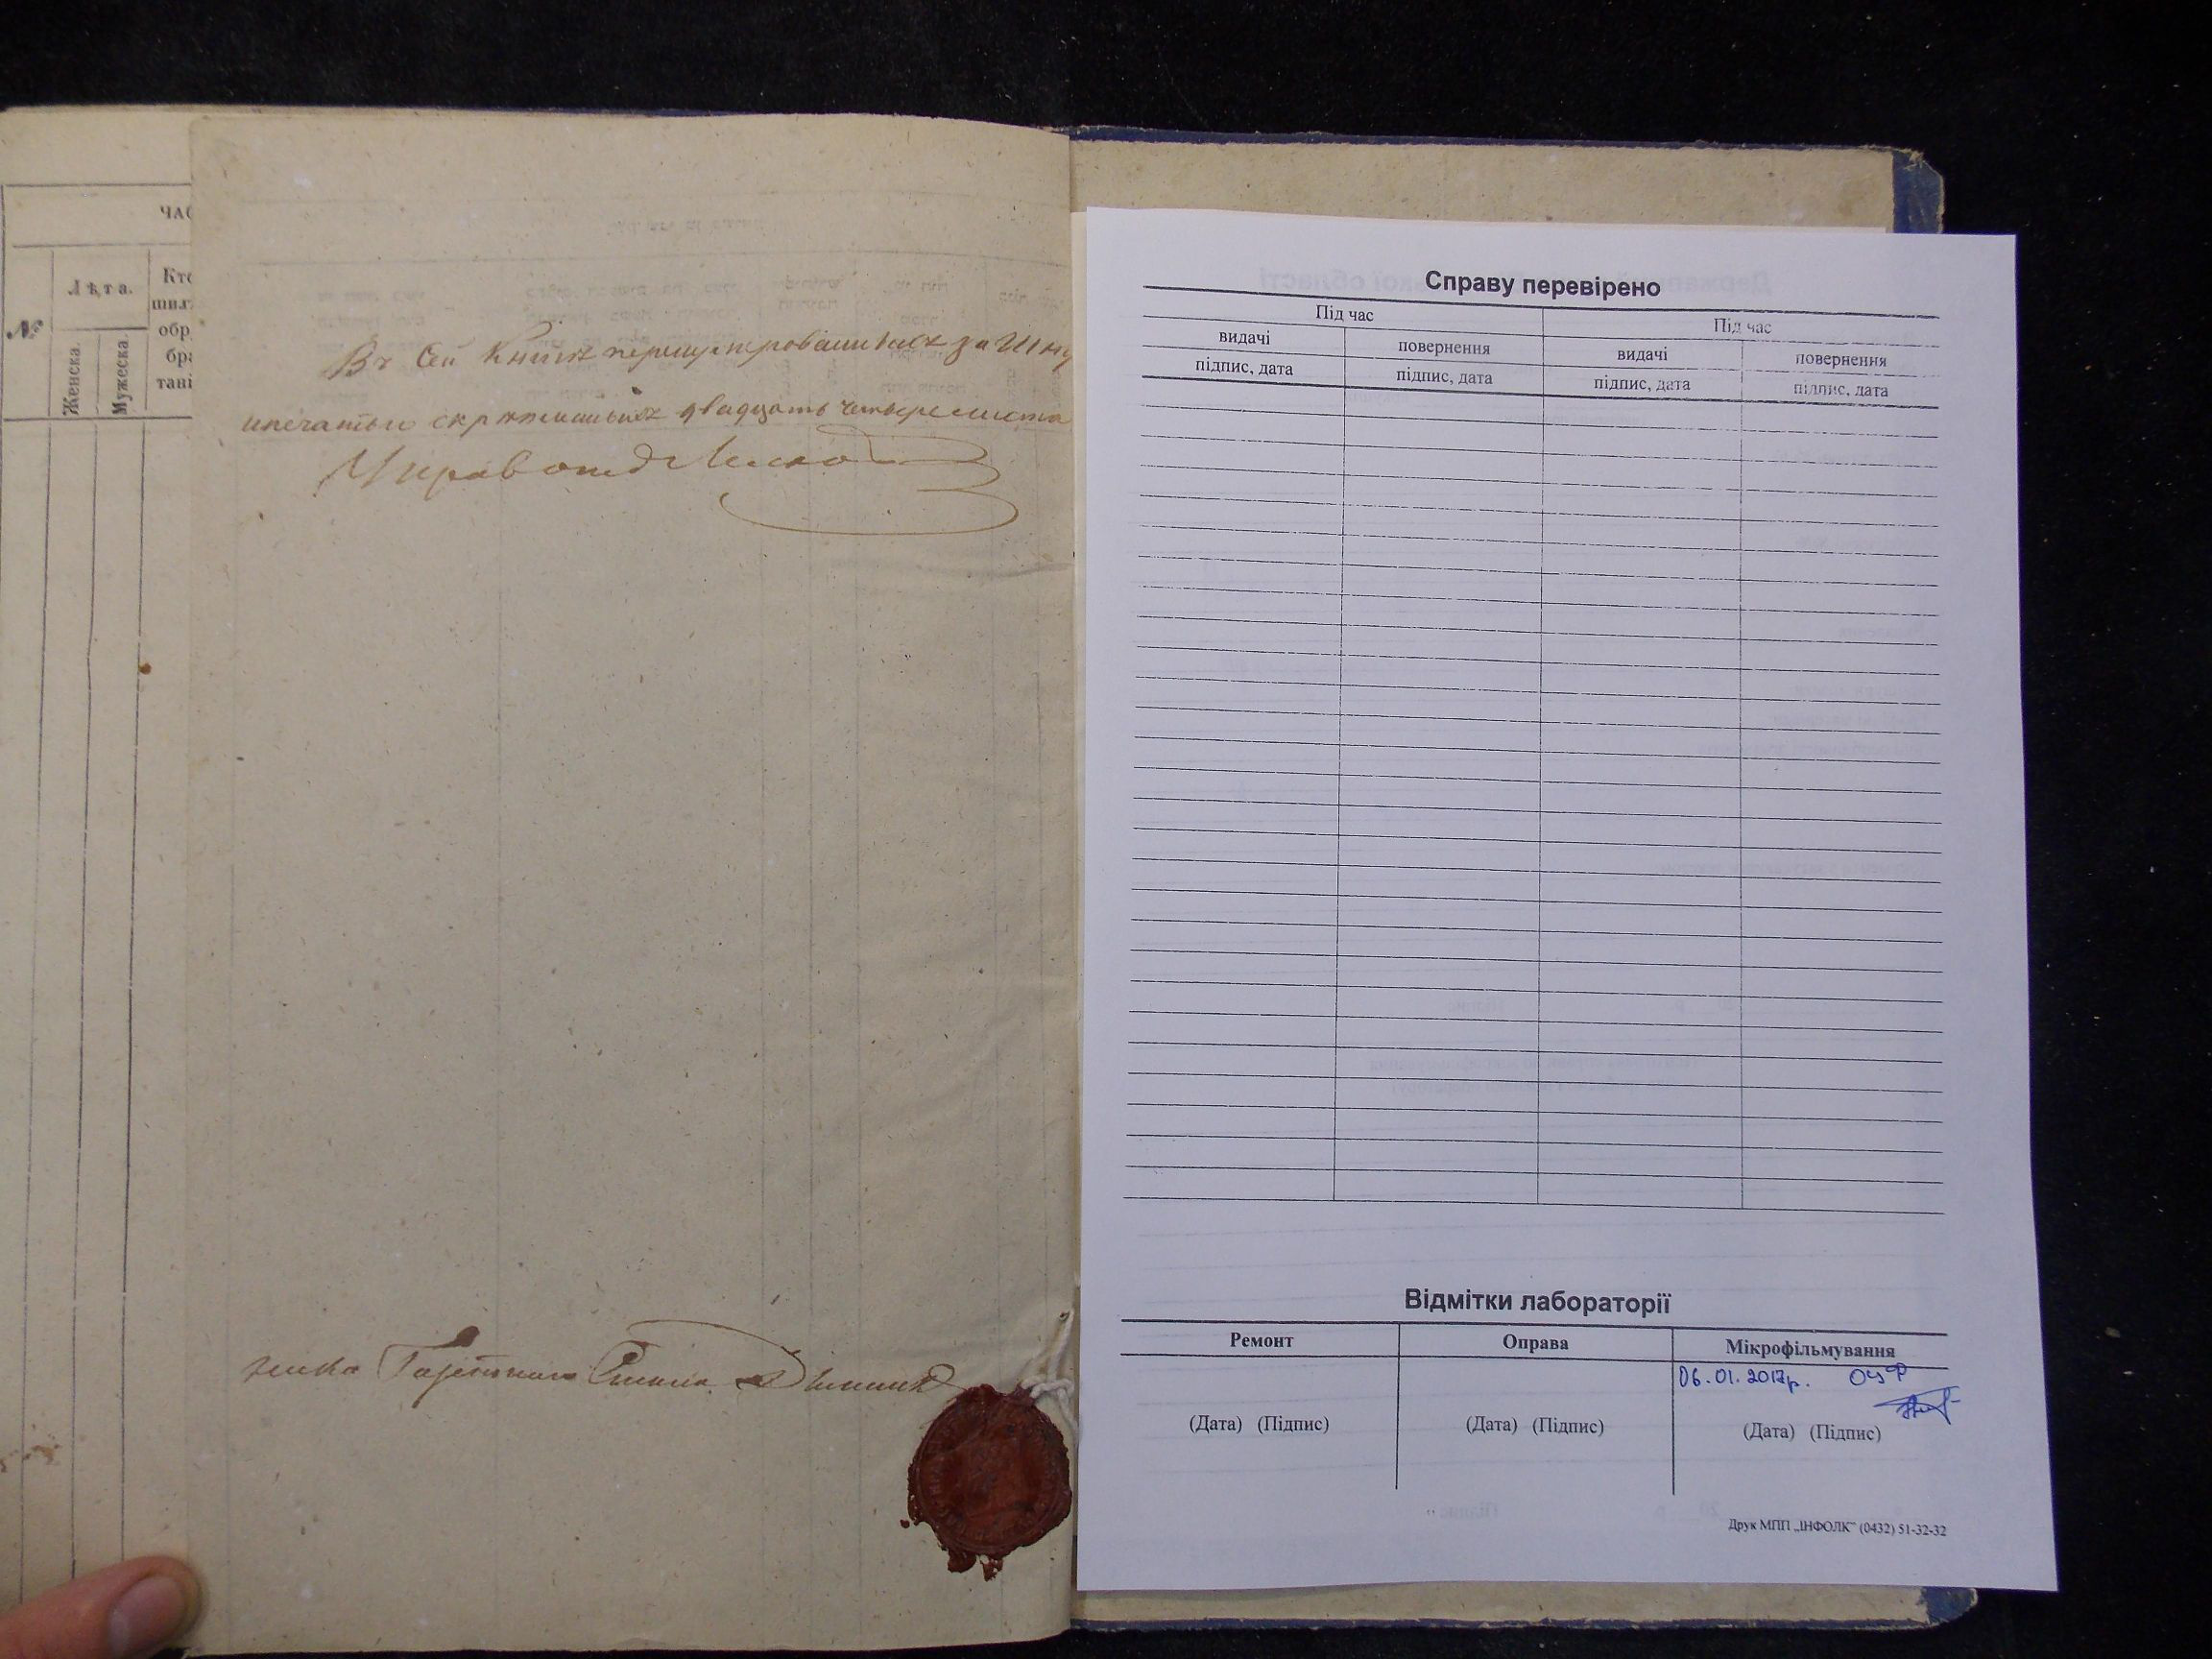 ЧАС
№
Лѣта.
Женска.
Мужеска.
Кто
шил
обр
бра
тані
Въ Сей Книгѣ перенумерованныхъ за Шну
ипечатью скрѣпленныхъ двадцать четыре листа
Справу перевірено
Під час
Під час
видачі
повернення
видачі
повернення
підпис, дата
підпис, дата
підпис, дата
підпис, дата
Відмітки лабораторії
Ремонт
Оправа
Мікрофільмування
06.01.2017р.
(Дата) (Підпис)
(Дата) (Підпис)
(Дата) (Підпис)
Друк МПП „ІНФОЛК“ (0432) 51-32-32